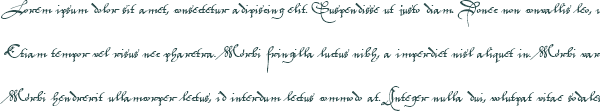 Lorem ipsum dolor sit amet, consectetur adipiscing elit. Suspendisse ut justo diam. Donec non convallis leo, u
Etiam tempor vel risus nec pharetra. Morbi fringilla luctus nibh, a imperdiet nisl aliquet in. Morbi var
Morbi hendrerit ullamcorper lectus, id interdum lectus commodo at. Integer nulla dui, volutpat vitae sodales